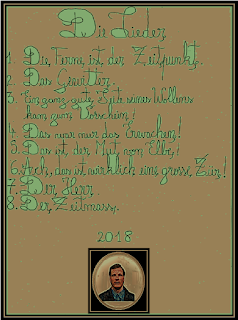 Die Lieder
1. Die Firne ist der Zeitpunkt.
2. Das Gewitter.
3. Ein ganz gute Seite seines Wollens
kam zum Vorschein!
4. Das war nur das Erwachen!
5. Das ist der Mut vom Elbr,!
6. Ach, das ist wirklich eine grosse Zier!
7. Der Herr.
8. Der Zeitmass.
2018